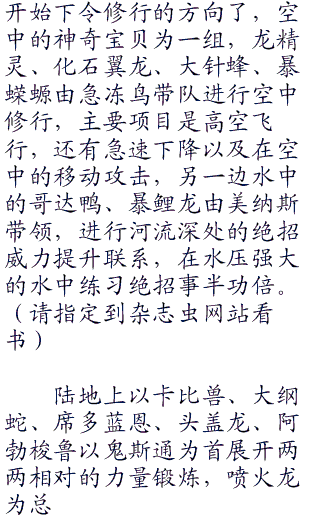 开始下令修行的方向了，空
中的神奇宝贝为一组，龙精
灵、化石翼龙、大针蜂、暴
蝾螈由急冻鸟带队进行空中
修行，主要项目是高空飞
行，还有急速下降以及在空
中的移动攻击，另一边水中
的哥达鸭、暴鲤龙由美纳斯
带领，进行河流深处的绝招
威力提升联系，在水压强大
的水中练习绝招事半功倍。
（请指定到杂志虫网站看
书）
陆地上以卡比兽、大纲
蛇、席多蓝恩、头盖龙、阿
勃梭鲁以鬼斯通为首展开两
两相对的力量锻炼，喷火龙
为总